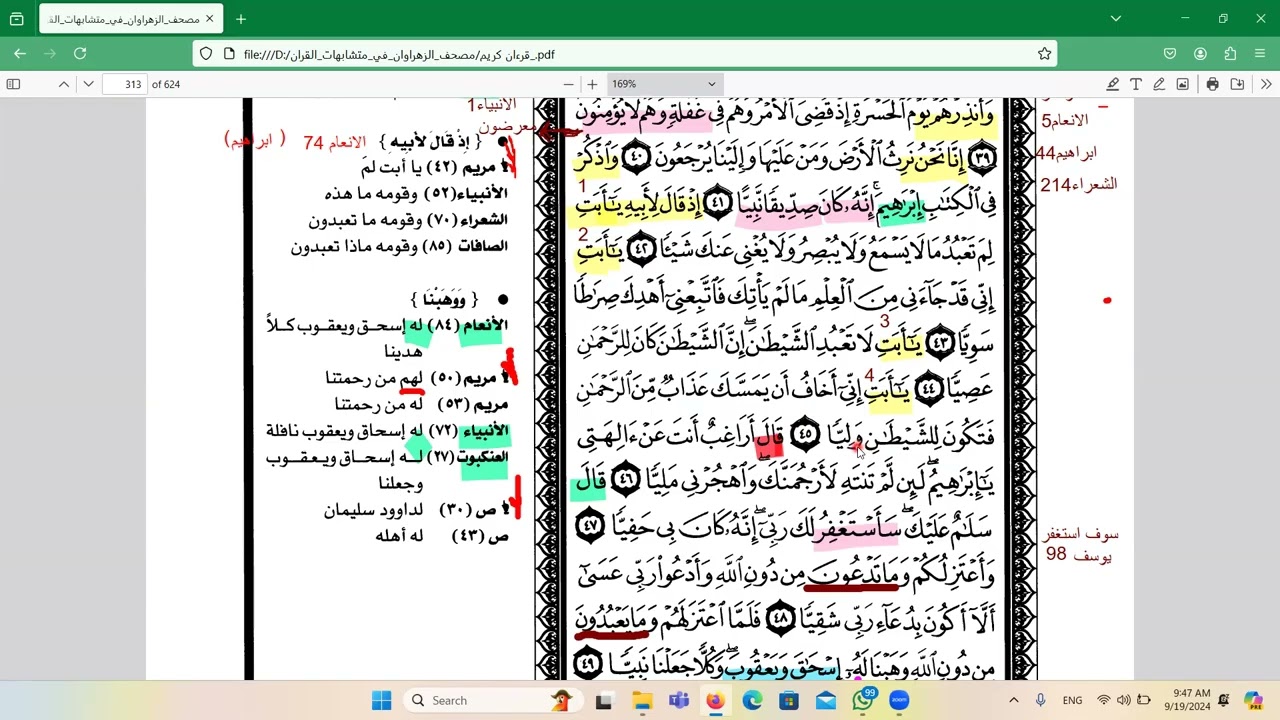 مصحف_الزهراوان_في_متشابهات_الق
file:///D:/قرءان كريم/مصحف_الزهراوان_في_متشابهات_القران_.pdf
313 of 624
169%
الأنبياء1
معرضون
{ إِذْ قَالَ لأبيه } الانعام 74 ( ابراهيم)
مريم (٤٢) يا أبت لمَ
الأنبياء(٥٢) وقومه ما هذه
الشعراء (٧٠) وقومه ما تعبدون
الصافات (٨٥) وقومه ماذا تعبدون
{ وَوَهَبْنَا }
الأنعام (٨٤) له إسحـق ويعقـوب كـلاً
هدينا
مريم (٥٠) لهم من رحمتنا
مريم (٥٣) له من رحمتنا
الأنبياء (٧٢) له إسحاق ويعقوب نافلة
العنكبوت(٢٧) لـه إسحـاق ويـعقـوب
وجعلنا
ص (٣٠) لداوود سليمان
ص (٤٣) له أهله
وَأَنذِرْهُمْ يَوْمَ ٱلْحَسْرَةِ إِذْ قُضِىَ ٱلْأَمْرُ وَهُمْ فِى غَفْلَةٍ وَهُمْ لَا يُؤْمِنُونَ
٣٩ إِنَّا نَحْنُ نَرِثُ ٱلْأَرْضَ وَمَنْ عَلَيْهَا وَإِلَيْنَا يُرْجَعُونَ ٤٠ وَٱذْكُرْ
1
فِى ٱلْكِتَٰبِ إِبْرَٰهِيمَ ۚ إِنَّهُۥ كَانَ صِدِّيقًا نَّبِيًّا ٤١ إِذْ قَالَ لِأَبِيهِ يَٰٓأَبَتِ
2
لِمَ تَعْبُدُ مَا لَا يَسْمَعُ وَلَا يُبْصِرُ وَلَا يُغْنِى عَنكَ شَيْـًٔا ٤٢ يَٰٓأَبَتِ
إِنِّى قَدْ جَآءَنِى مِنَ ٱلْعِلْمِ مَا لَمْ يَأْتِكَ فَٱتَّبِعْنِىٓ أَهْدِكَ صِرَٰطًا
3
سَوِيًّا ٤٣ يَٰٓأَبَتِ لَا تَعْبُدِ ٱلشَّيْطَٰنَ ۖ إِنَّ ٱلشَّيْطَٰنَ كَانَ لِلرَّحْمَٰنِ
4
عَصِيًّا ٤٤ يَٰٓأَبَتِ إِنِّىٓ أَخَافُ أَن يَمَسَّكَ عَذَابٌ مِّنَ ٱلرَّحْمَٰنِ
فَتَكُونَ لِلشَّيْطَٰنِ وَلِيًّا ٤٥ قَالَ أَرَاغِبٌ أَنتَ عَنْ ءَالِهَتِى
يَٰٓإِبْرَٰهِيمُ ۖ لَئِن لَّمْ تَنتَهِ لَأَرْجُمَنَّكَ ۖ وَٱهْجُرْنِى مَلِيًّا ٤٦ قَالَ
سَلَٰمٌ عَلَيْكَ ۖ سَأَسْتَغْفِرُ لَكَ رَبِّىٓ ۖ إِنَّهُۥ كَانَ بِى حَفِيًّا ٤٧
وَأَعْتَزِلُكُمْ وَمَا تَدْعُونَ مِن دُونِ ٱللَّهِ وَأَدْعُوا۟ رَبِّى عَسَىٰٓ
أَلَّآ أَكُونَ بِدُعَآءِ رَبِّى شَقِيًّا ٤٨ فَلَمَّا ٱعْتَزَلَهُمْ وَمَا يَعْبُدُونَ
مِن دُونِ ٱللَّهِ وَهَبْنَا لَهُۥٓ إِسْحَٰقَ وَيَعْقُوبَ ۖ وَكُلًّا جَعَلْنَا نَبِيًّا ٤٩
الانعام5
ابراهيم44
الشعراء214
سوف استغفر
يوسف 98
Search
99
zoom
ENG
9:47 AM
9/19/2024